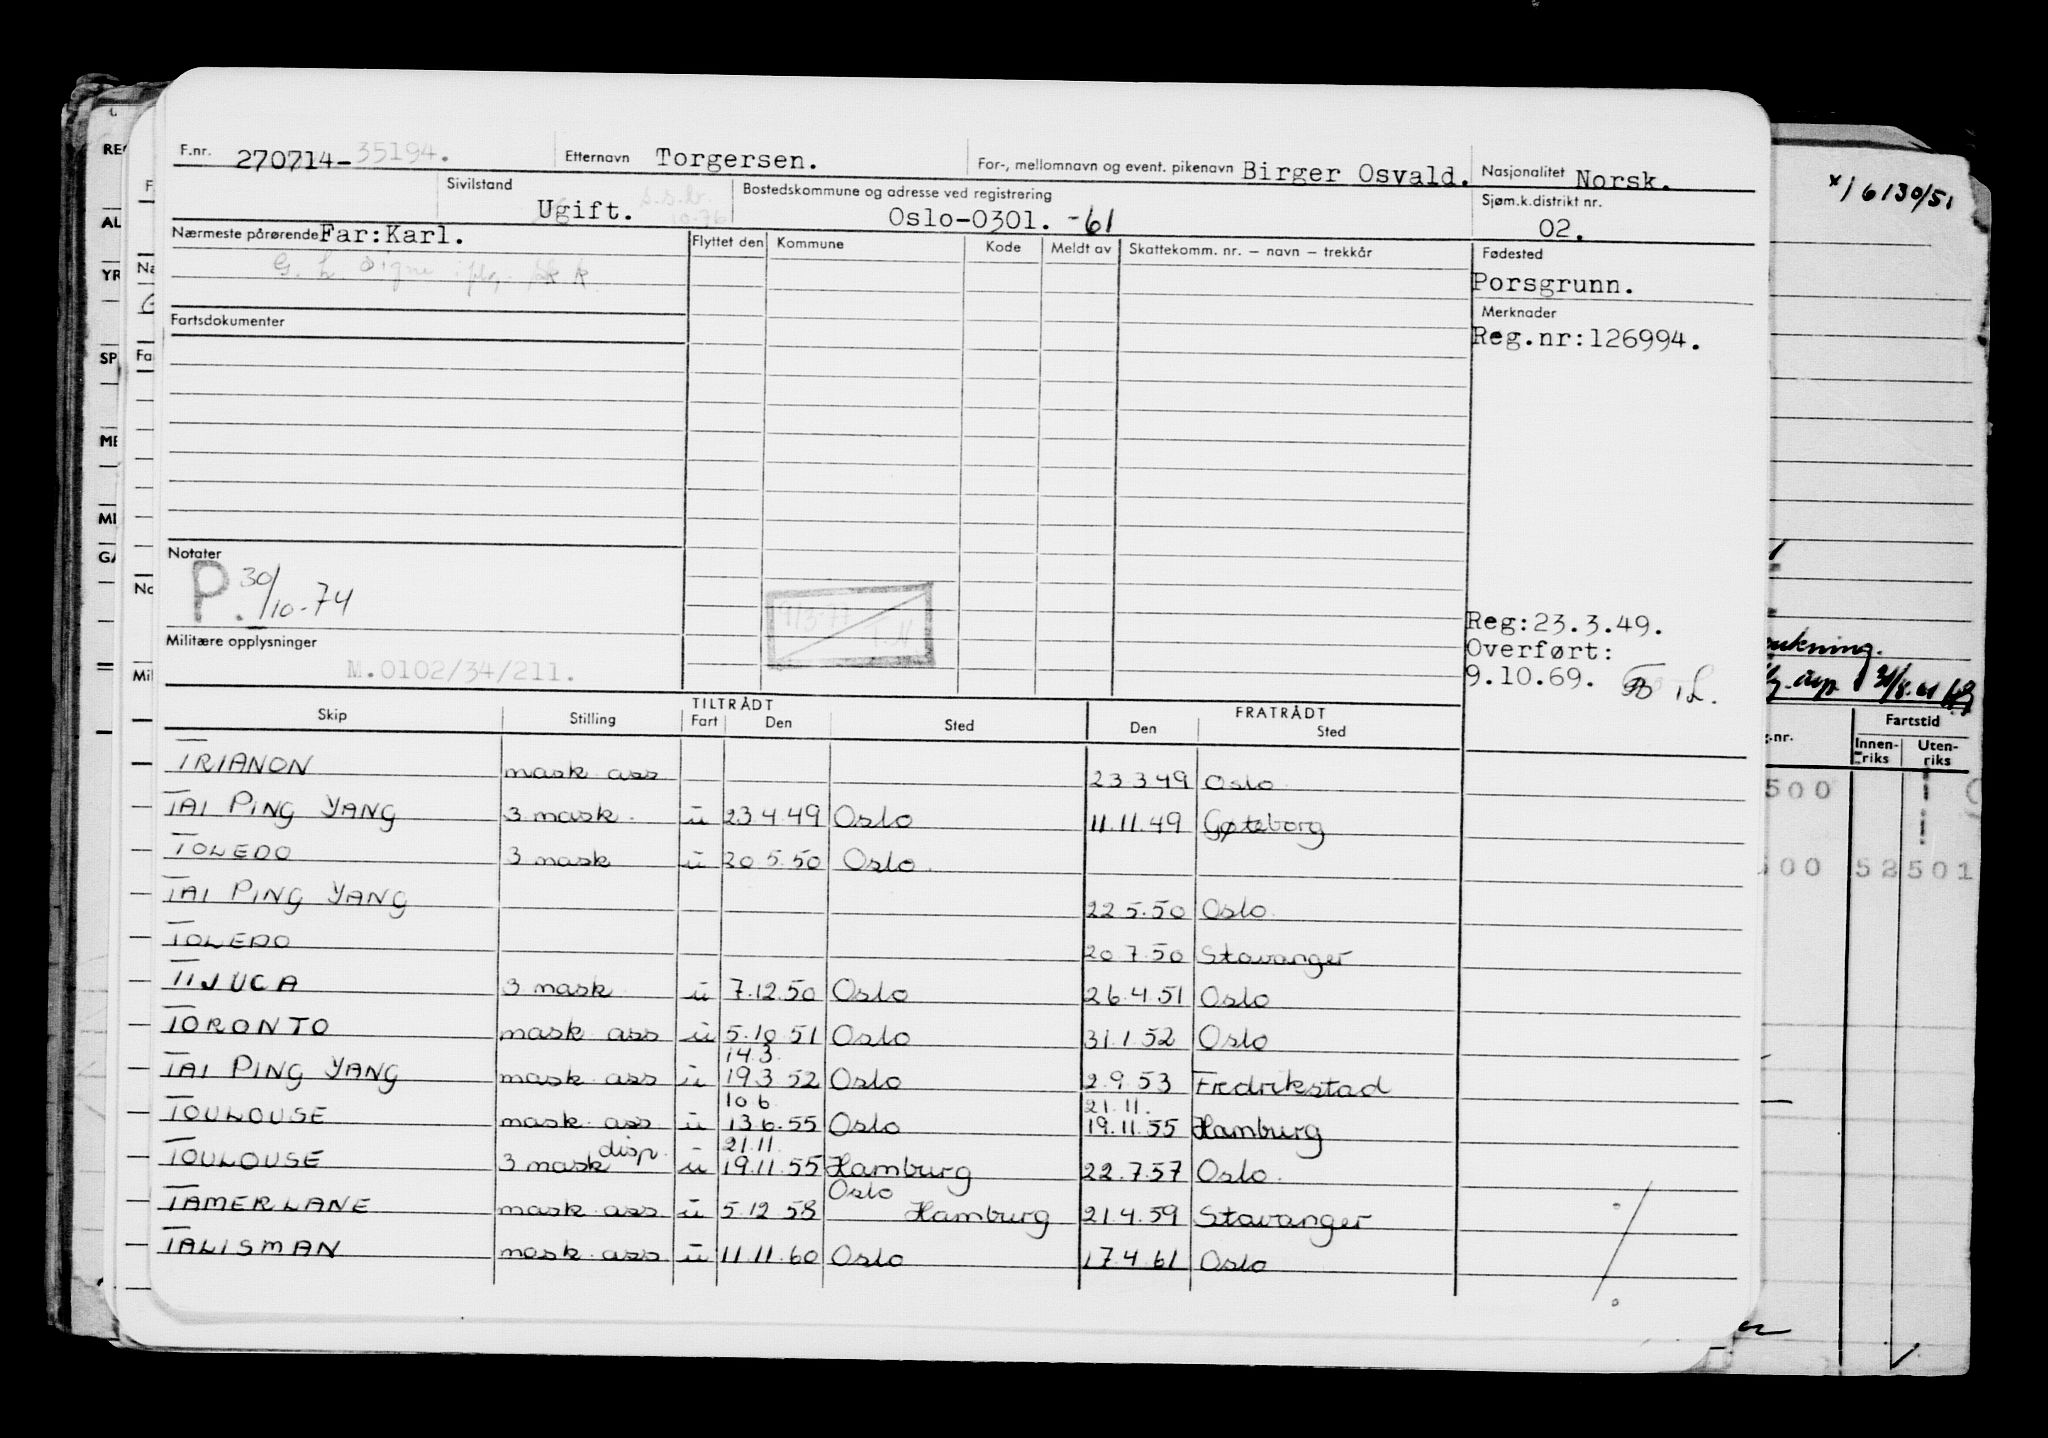 F.nr. 270714-35194. Etternavn Torgersen. For-, mellomnavn og event. pikenavn Birger Osvald. Nasjonalitet Norsk.
Sivilstand Ugift. Bostedskommune og adresse ved registrering Oslo-0301. -61 Sjøm.k.distrikt nr. 02.
Nærmeste pårørende Far:Karl. Flyttet den Kommune Kode Meldt av Skattekomm. nr. – navn – trekkår Fødested
Porsgrunn.
Fartsdokumenter Merknader
Reg.nr:126994.
Notater
P. 30/10-74
Reg:23.3.49.
Militære opplysninger Overført:
M.0102/34/211. 9.10.69.
TILTRÅDT FRATRÅDT
Skip Stilling Fart Den Sted Den Sted
TRIANON mask ass 23 3 49 Oslo
TAI PING YANG 3 mask. u 23 4 49 Oslo 11.11.49 Gøteborg
TOLEDO 3 mask u 20 5.50 Oslo.
TAI PING YANG 22 5.50 Oslo.
TOLEDO 20 7.50 Stavanger
TIJUCA 3 mask u 7.12.50 Oslo 26.4.51 Oslo
TORONTO mask ass u 5.10 51 Oslo 31.1.52 Oslo
14.3.
TAI PING YANG mask ass u 19.3 52 Oslo 2.9.53 Fredrikstad
10 6. 21.11.
TOULOUSE mask ass u 13.6.55 Oslo 19.11.55 Hamburg
disp. 21.11.
TOULOUSE 3 mask u 19.11.55 Hamburg 22.7.57 Oslo.
Oslo
TAMERLANE mask ass u 5.12 58 Hamburg 21.4.59 Stavanger
TALISMAN mask ass u 11.11.60 Oslo 17.4.61 Oslo
x) 6130/51
Fartstid
Innen-riks Uten-riks
500
52 501